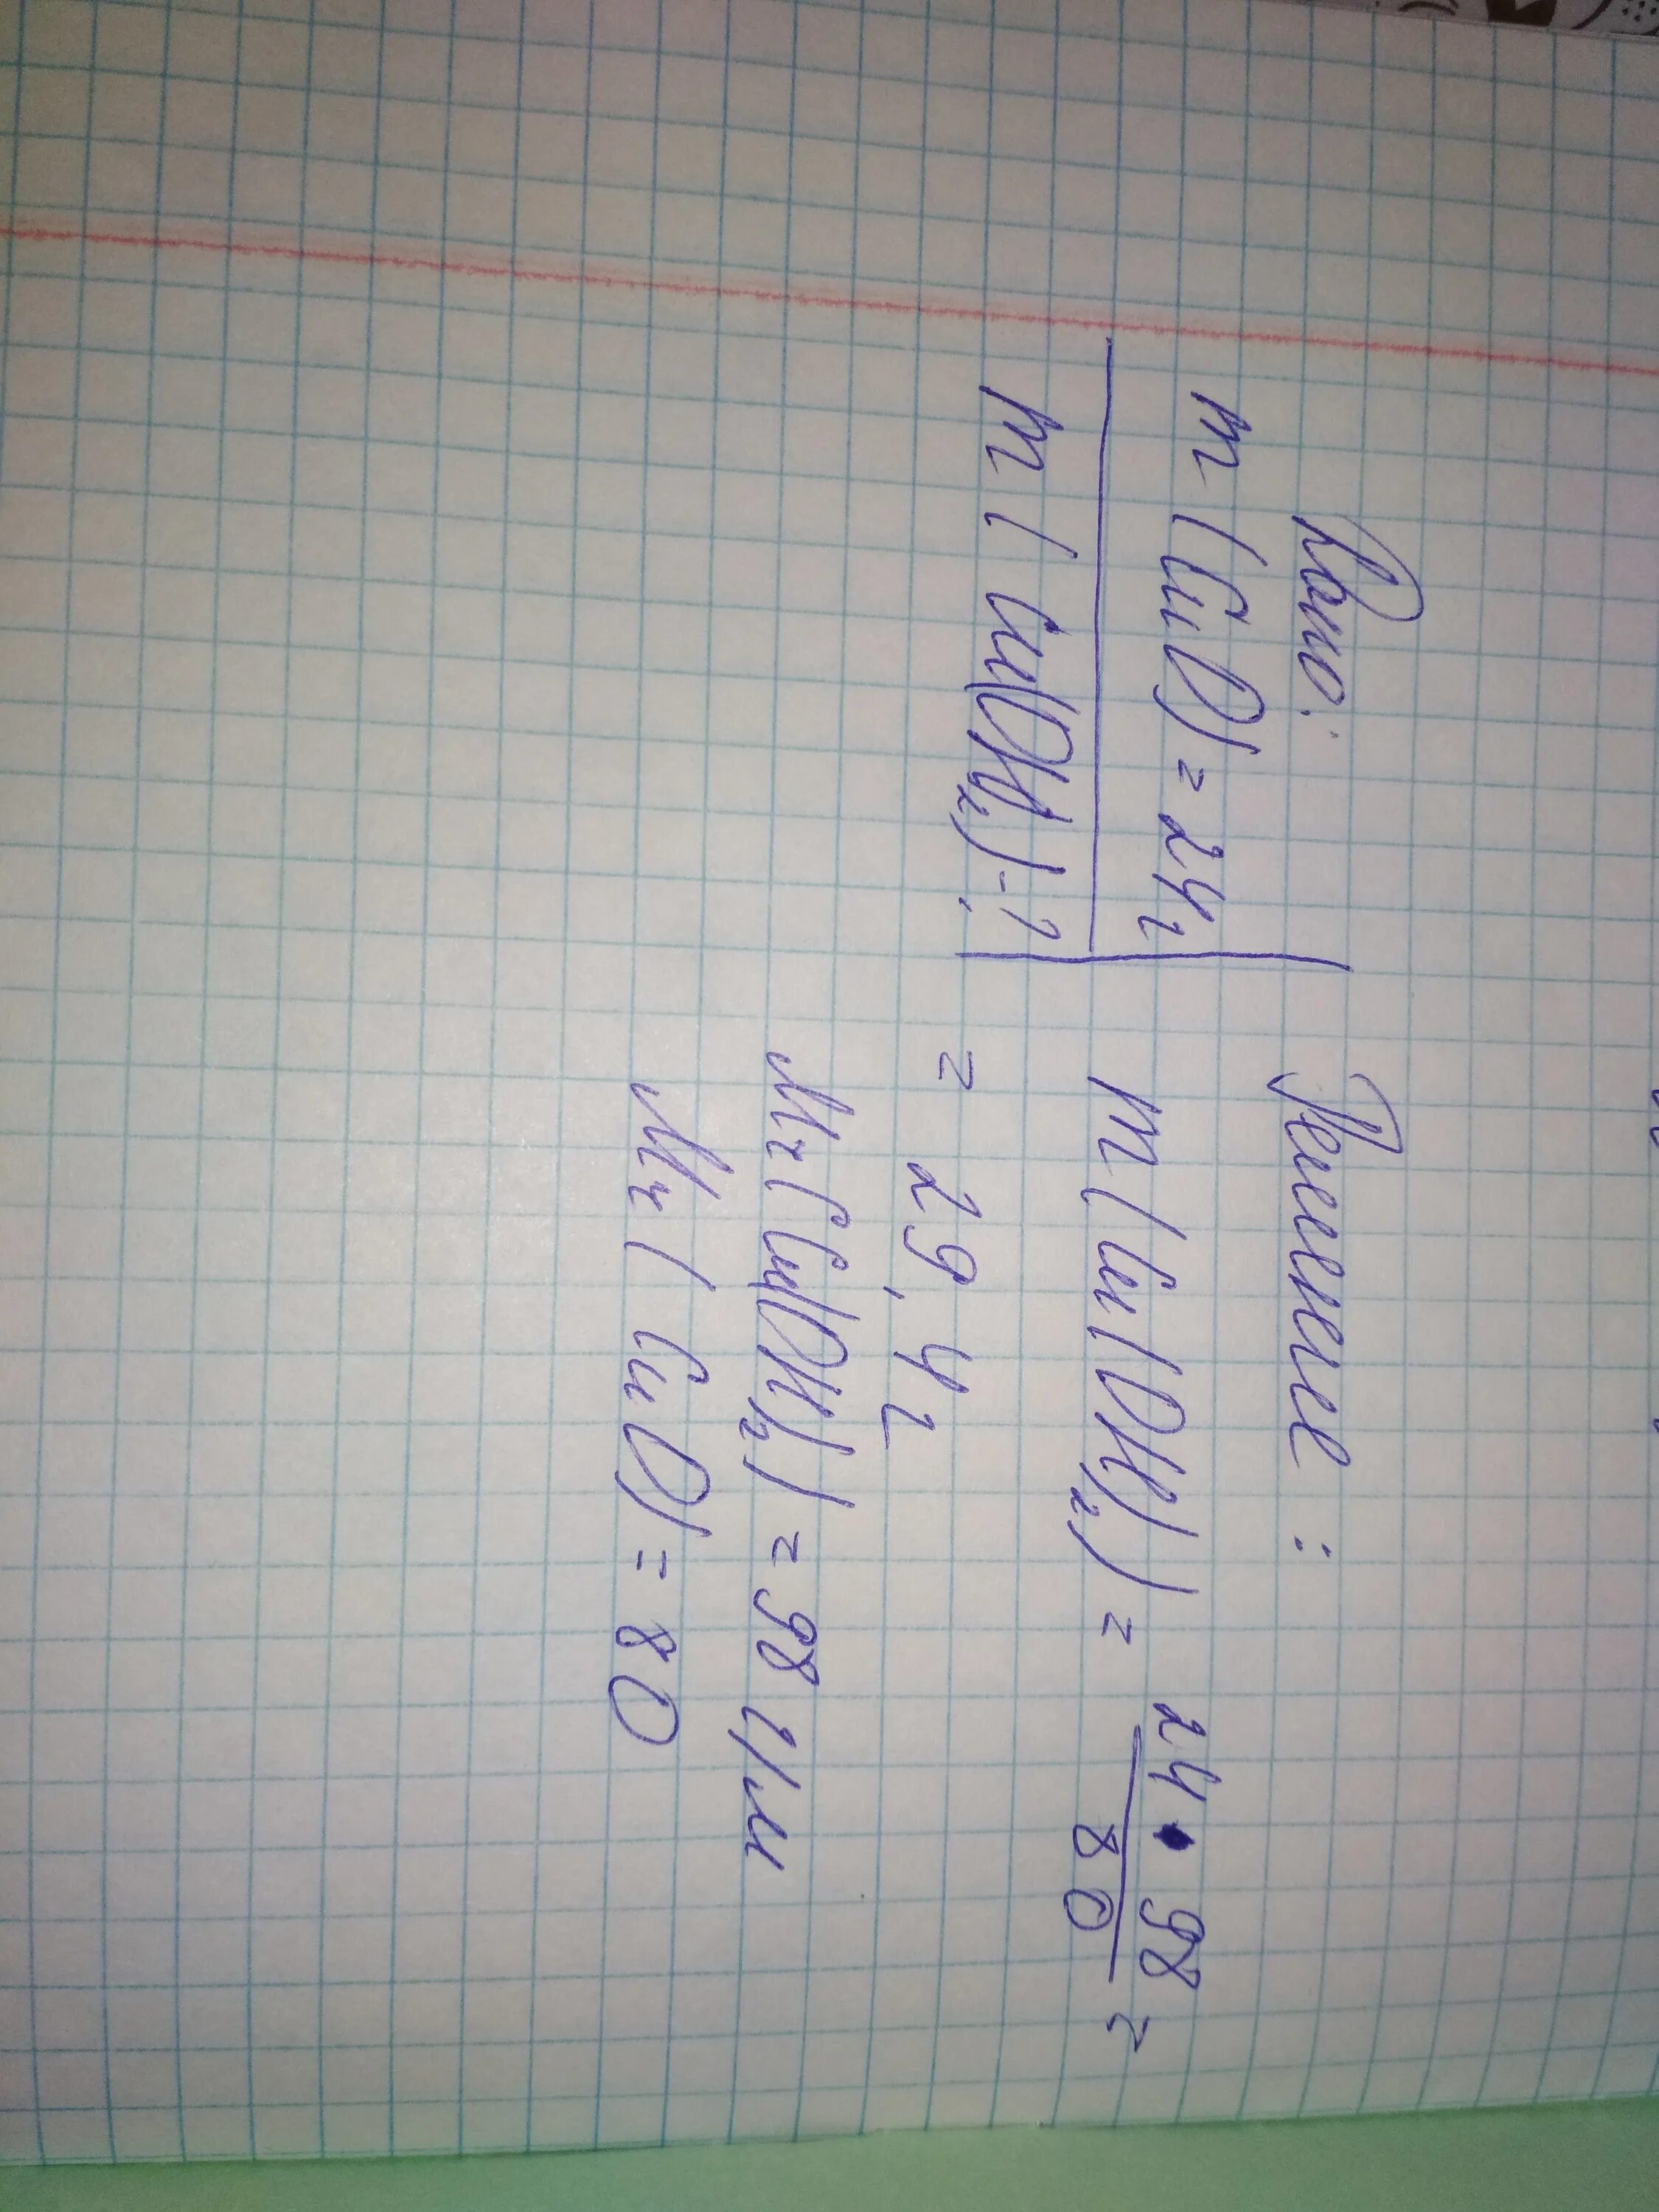 Дано:
m (CuO) = 24 г
m (Cu(OH)2) - ?
Решение :
m (Cu(OH)2) = 24 • 98 / 80 =
= 29,4 г
Mr (Cu(OH)2) = 98 г/м
Mr (CuO) = 80